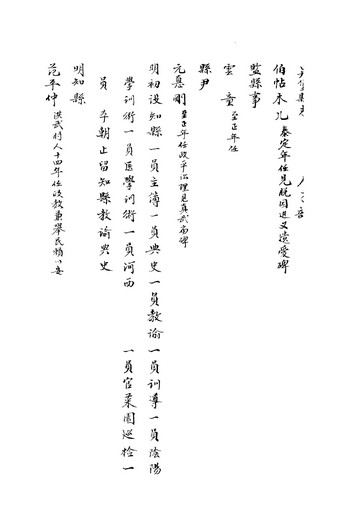 伯帖木兒 泰定年任見脱因進义遺愛碑
監縣事
雲童 至正年任
縣尹
元惠剛 至正年任政平訟理見真武廟碑
明初設知縣一員主簿一員典史一員教諭一員訓導一員陰陽
學訓術一員医學訓術一員河西 一員官菜園巡檢一
員 本朝止留知縣教諭典史
明知縣
范平仲 洪武時人十四年任政教兼舉民賴以安